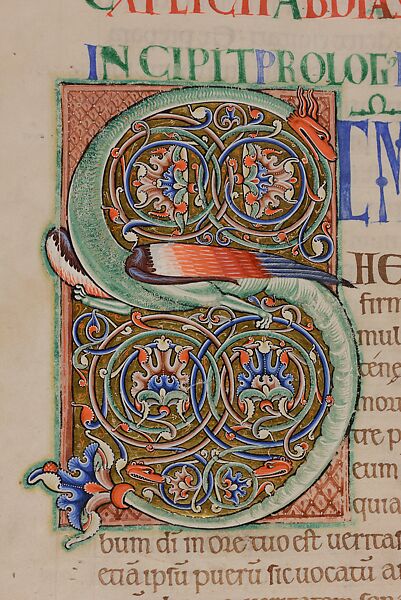 EXPLICIT ABDIAS
INCIPIT PROLOG'
S
EM
HE
firm
mul
tenę
mor
tre p
eum
quia
bum di in ore tuo est veritas
etiā ipsū puerū sic vocatū a